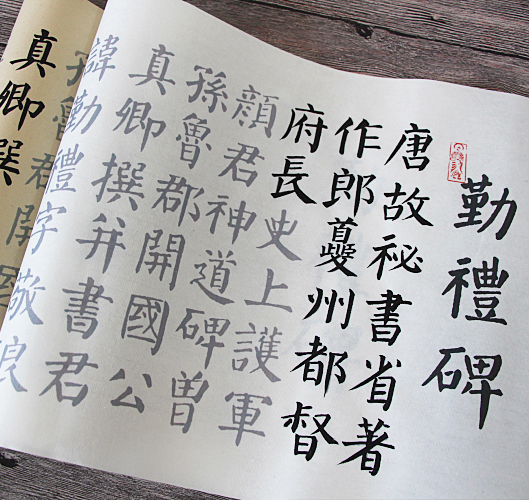 勤禮碑
唐故祕書省著
作郎夔州都督
府長史上護軍
顏君神道碑曾
孫魯郡開國公
真卿撰并書君
諱勤禮字敬
孫魯郡開國
真卿撰